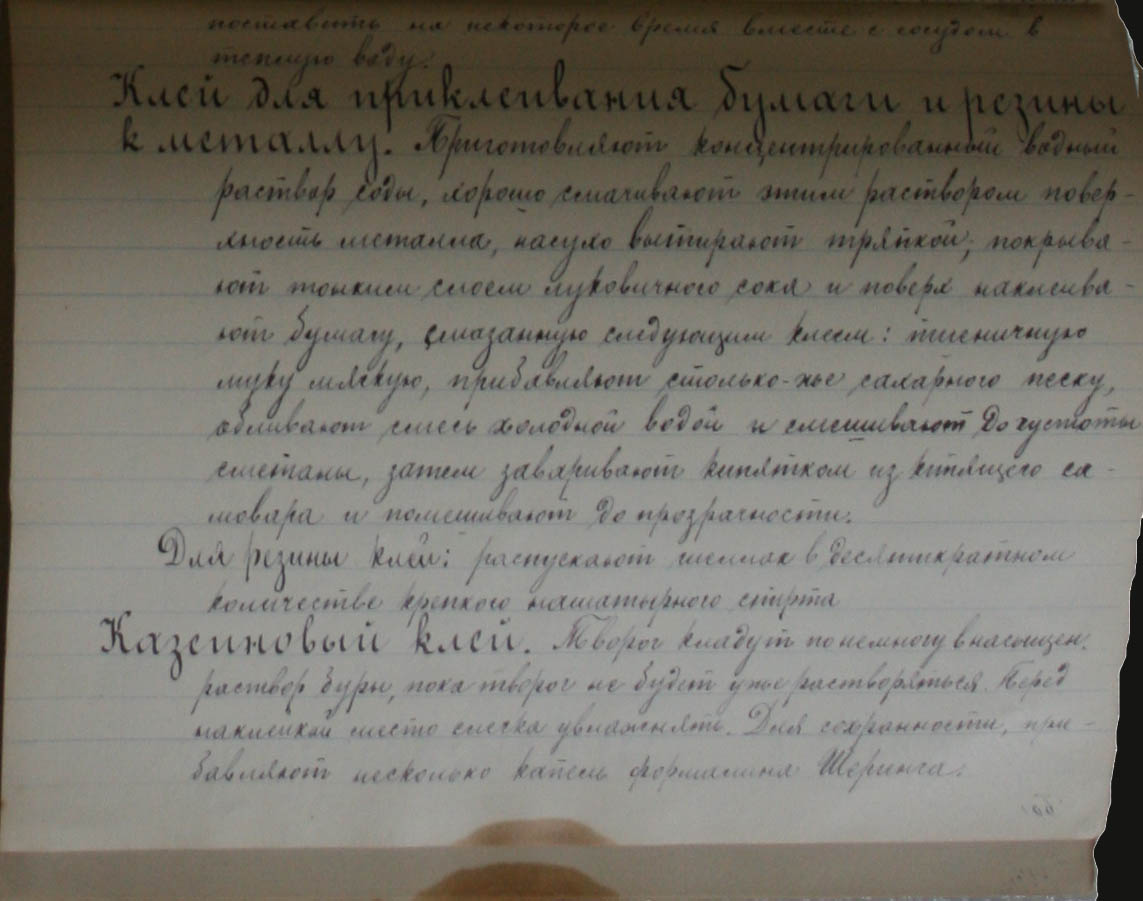 поставить на некоторое время вместе с сосудом в
теплую воду.
Клей для приклеивания бумаги и резины
к металлу. Приготовляют концентрированный водный
раствор соды, хорошо смачивают этим раствором повер-
хность металла, насухо вытирают тряпкой, покрыва-
ют тонким слоем луковичного сока и поверх наклеива-
ют бумагу, смазанную следующим клеем: пшеничную
муку мягкую, прибавляют столько-же сахарного песку,
обливают смесь холодной водой и смешивают до густоты
сметаны, затем заваривают кипятком из кипящего са-
мовара и помешивают до прозрачности.
Для резины клей: распускают шеллак в десятикратном
количестве крепкого нашатырного спирта
Казеиновый клей. Творог кладут понемногу в насыщен.
раствор буры, пока творог не будет уже растворяться. Перед
наклейкой место слегка увлажнять. Для сохранности, при-
бавляют несколько капель формалина Шеринга.